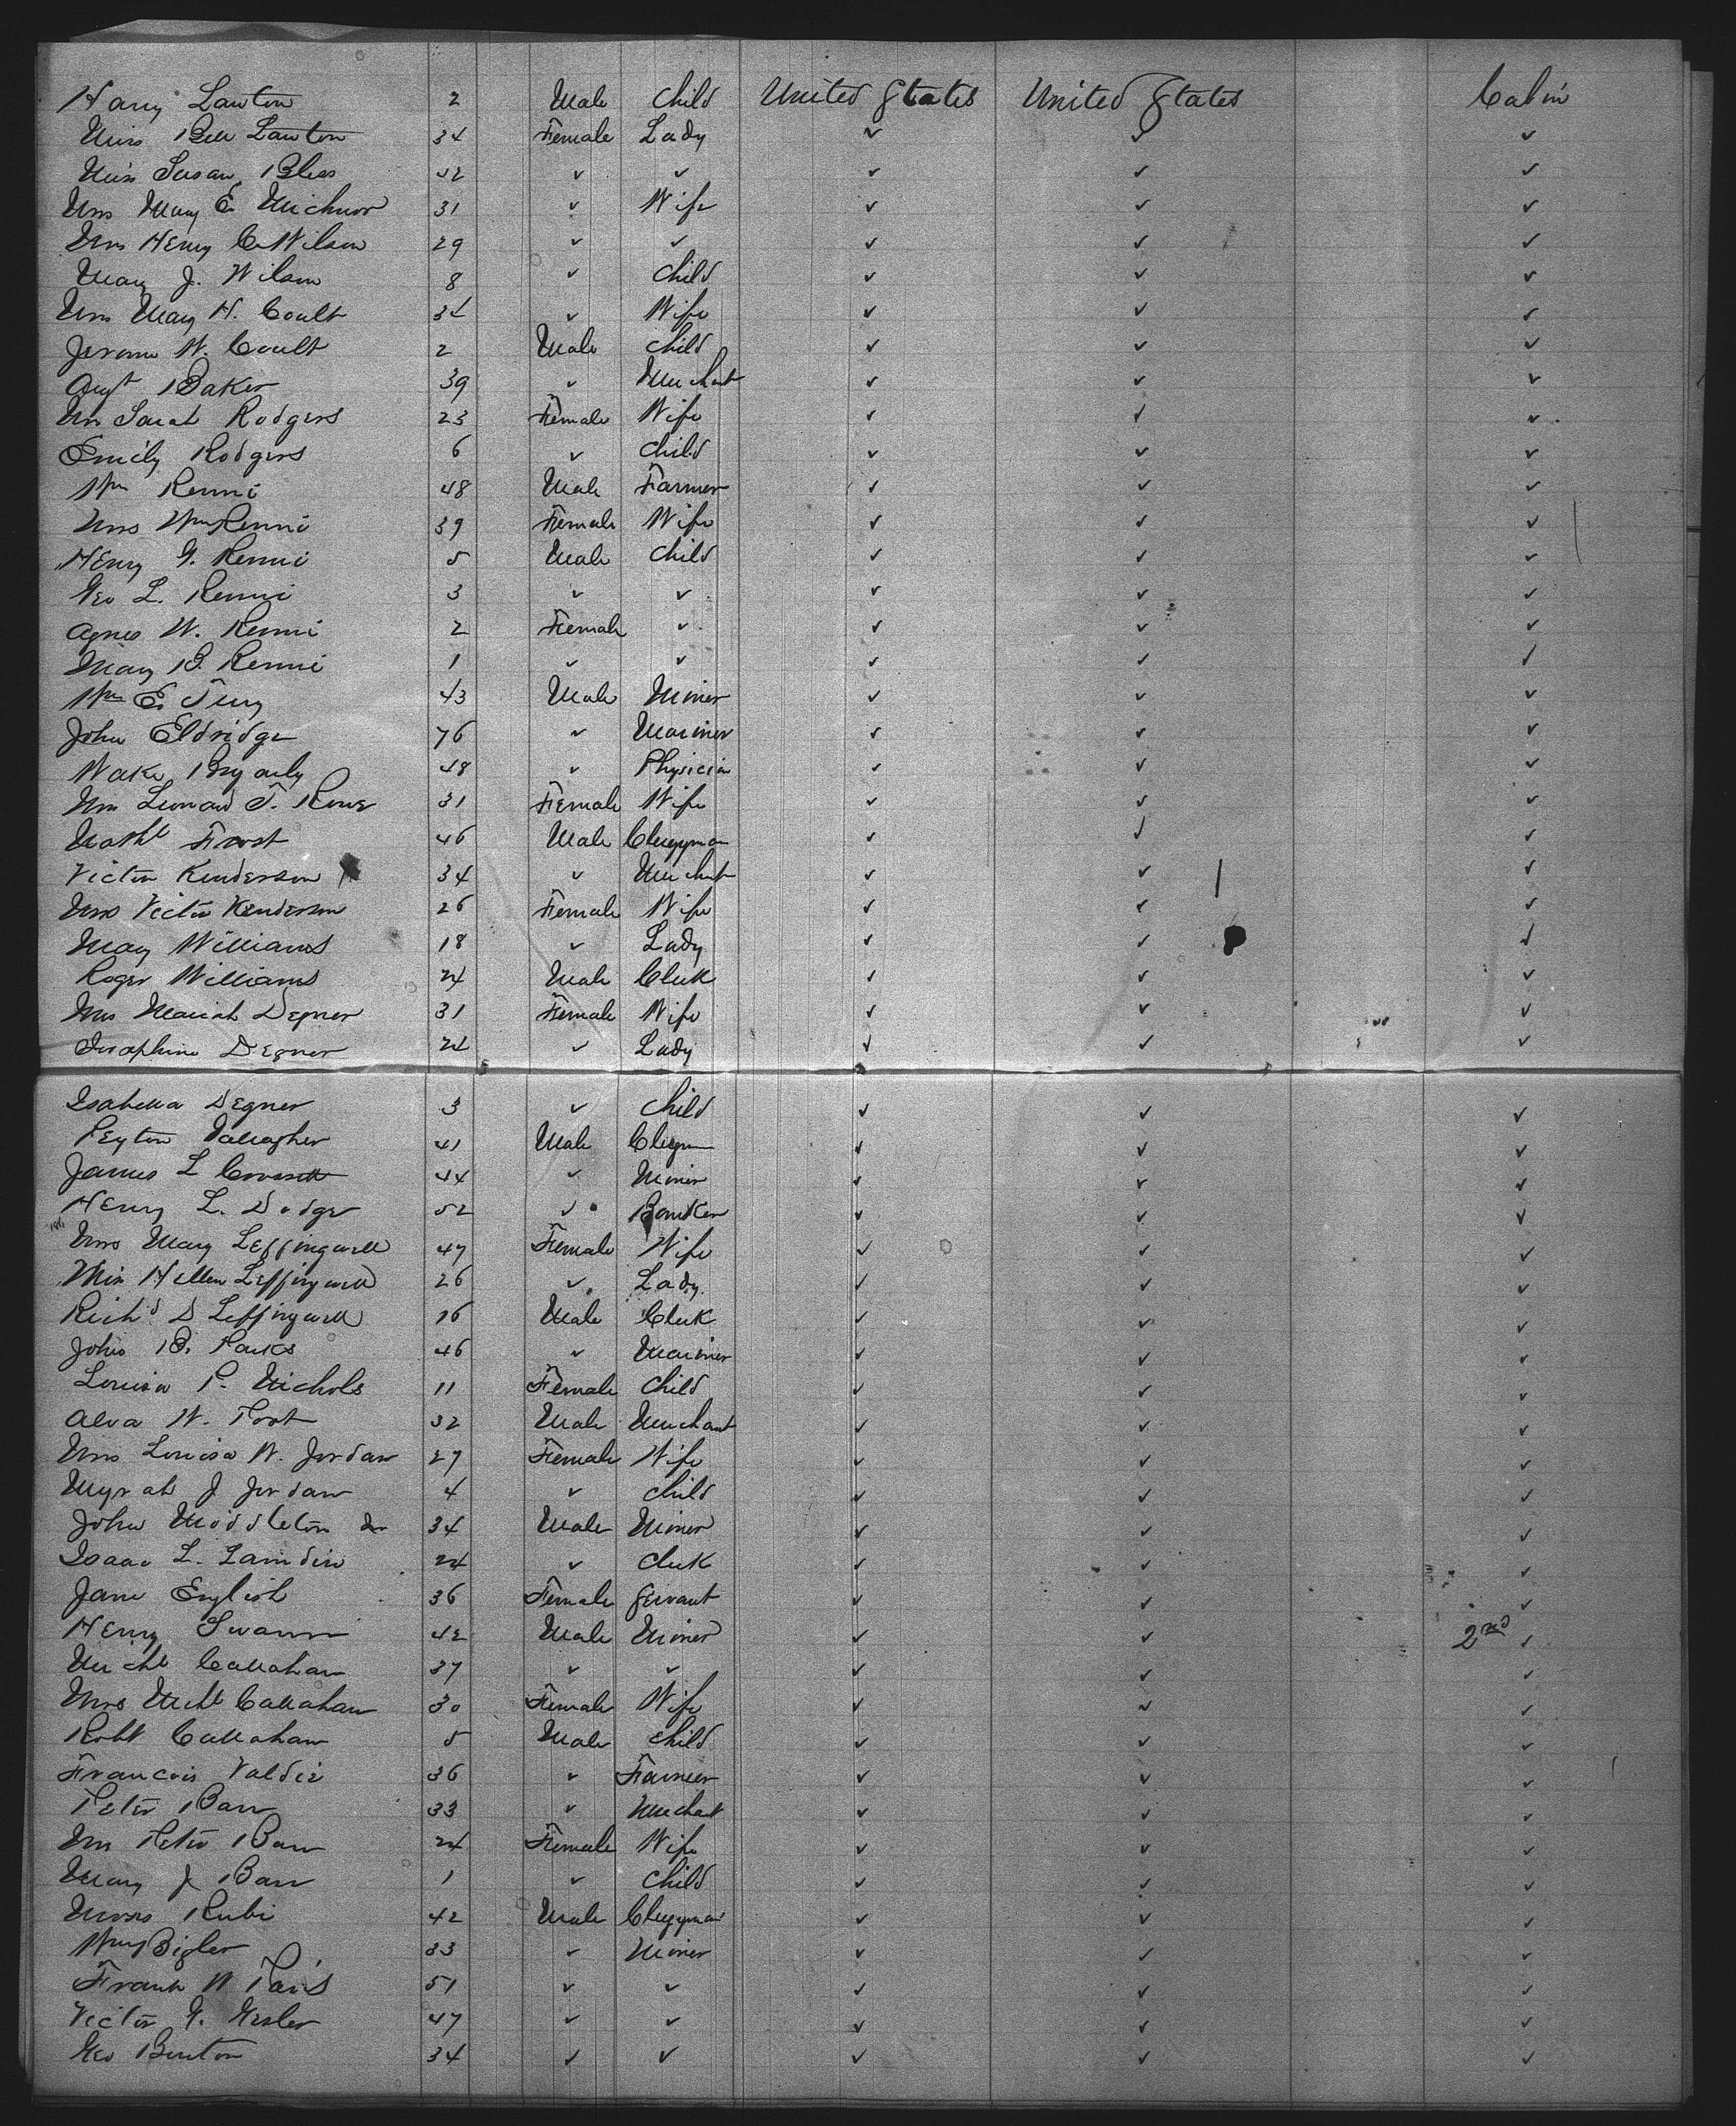 Harry Lawton 2 Male Child United States United States Cabin
Miss Bell Lawton 34 Female Lady ✓ ✓ ✓
Miss Susan Bless 42 ✓ ✓ ✓ ✓ ✓
Mrs Mary E. Michnor 31 ✓ Wife ✓ ✓ ✓
Mrs Henry C Wilson 29 ✓ ✓ ✓ ✓ ✓
Mary J. Wilson 8 ✓ Child ✓ ✓ ✓
Mrs Mary H. Coult 34 ✓ Wife ✓ ✓ ✓
Jerome W. Coult 2 Male Child ✓ ✓ ✓
Augt Baker 39 ✓ Merchant ✓ ✓ ✓
Mrs Sarah Rodgers 23 Female Wife ✓ ✓ ✓
Emily Rodgers 6 ✓ Child ✓ ✓ ✓
Wm Rennie 48 Male Farmer ✓ ✓ ✓
Mrs Wm Rennie 39 Female Wife ✓ ✓ ✓
Henry G. Rennie 5 Male Child ✓ ✓ ✓
Geo L. Rennie 3 ✓ ✓ ✓ ✓ ✓
Agnes W. Rennie 2 Female ✓ ✓ ✓ ✓
Mary B. Rennie 1 ✓ ✓ ✓ ✓ ✓
Wm E. Terry 43 Male Miner ✓ ✓ ✓
John Eldridge 76 ✓ Mariner ✓ ✓ ✓
Wake Bryarly 48 ✓ Physician ✓ ✓ ✓
Mrs Leonard T. Rowe 31 Female Wife ✓ ✓ ✓
Nathl Frost 46 Male Clergyman ✓ ✓ ✓
Victor Kenderson 34 ✓ Merchant ✓ ✓ ✓
Mrs Victor Kenderson 26 Female Wife ✓ ✓ ✓
Mary Williams 18 ✓ Lady ✓ ✓ ✓
Roger Williams 24 Male Clerk ✓ ✓ ✓
Mrs Mariah Degner 31 Female Wife ✓ ✓ ✓
Josephine Degner 24 ✓ Lady ✓ ✓ ✓
Isabella Degner 3 ✓ Child ✓ ✓ ✓
Peyton Gallagher 41 Male Clergm ✓ ✓ ✓
James L 44 ✓ Miner ✓ ✓ ✓
Henry L. Dodge 52 ✓ Banker ✓ ✓ ✓
Mrs Mary Leffingwell 47 Female Wife ✓ ✓ ✓
Miss Hellen Leffingwell 26 ✓ Lady ✓ ✓ ✓
Richd D Leffingwell 16 Male Clerk ✓ ✓ ✓
John B. Parks 46 ✓ Mariner ✓ ✓ ✓
Louisa P. Nichols 11 Female Child ✓ ✓ ✓
Alva W. Post 32 Male Merchant ✓ ✓ ✓
Mrs Louisa W. Jordan 27 Female Wife ✓ ✓ ✓
Myrah J Jordan 4 ✓ Child ✓ ✓ ✓
John Middleton Jr 34 Male Miner ✓ ✓ ✓
Isaac L. Lamdin 24 ✓ Clerk ✓ ✓ ✓
Jane English 36 Female Servant ✓ ✓ ✓
Henry Swann 42 Male Miner ✓ ✓ 2nd ✓
Michl Callahan 37 ✓ ✓ ✓ ✓ ✓
Mrs Michl Callahan 30 Female Wife ✓ ✓ ✓
Robt Callahan 5 Male Child ✓ ✓ ✓
Francois Valdie 36 ✓ Farmer ✓ ✓ ✓
Peter Barr 33 ✓ Merchant ✓ ✓ ✓
Mrs Peter Barr 24 Female Wife ✓ ✓ ✓
Mary J. Barr 1 ✓ Child ✓ ✓ ✓
Moses Rubi 42 Male Clergyman ✓ ✓ ✓
Wm Bigler 33 ✓ Miner ✓ ✓ ✓
Frank W Paris 51 ✓ ✓ ✓ ✓ ✓
Victor G. Gesler 47 ✓ ✓ ✓ ✓ ✓
Geo Benton 34 ✓ ✓ ✓ ✓ ✓